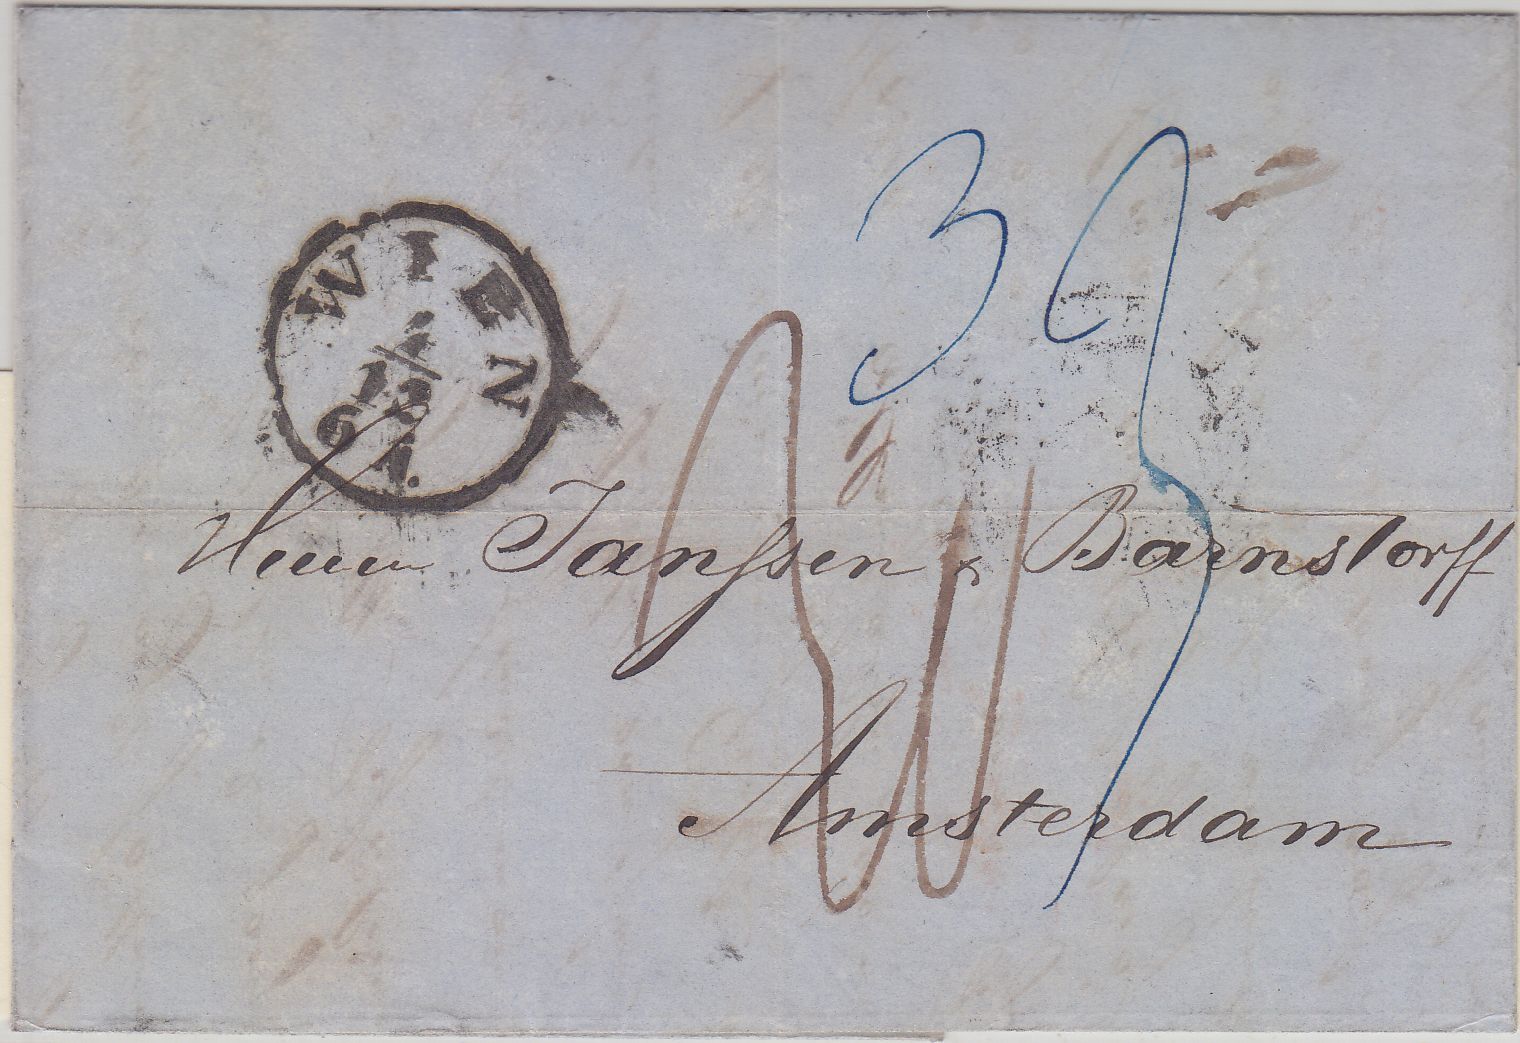 WIEN
6 A.
39
Herren Janssen & Barnstorff
Amsterdam